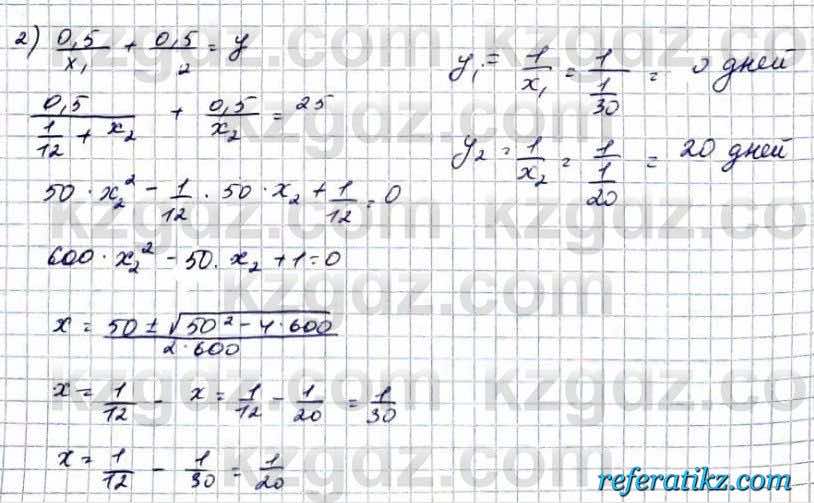 2) 0,5/x₁ + 0,5/₂ = y
0,5/(1/12 + x₂) + 0,5/x₂ = 25
50 · x₂² - 1/12 · 50 · x₂ + 1/12 = 0
600 · x₂² - 50 · x₂ + 1 = 0
x = (50 ± √(50² - 4 · 600))/(2 · 600)
x = 1/12 - x = 1/12 - 1/20 = 1/30
x = 1/12 - 1/30 = 1/20
y₁ = 1/x₁ = 1/(1/30) = 0 дней
y₂ = 1/x₂ = 1/(1/20) = 20 дней
kzgdz.com
referatikz.com